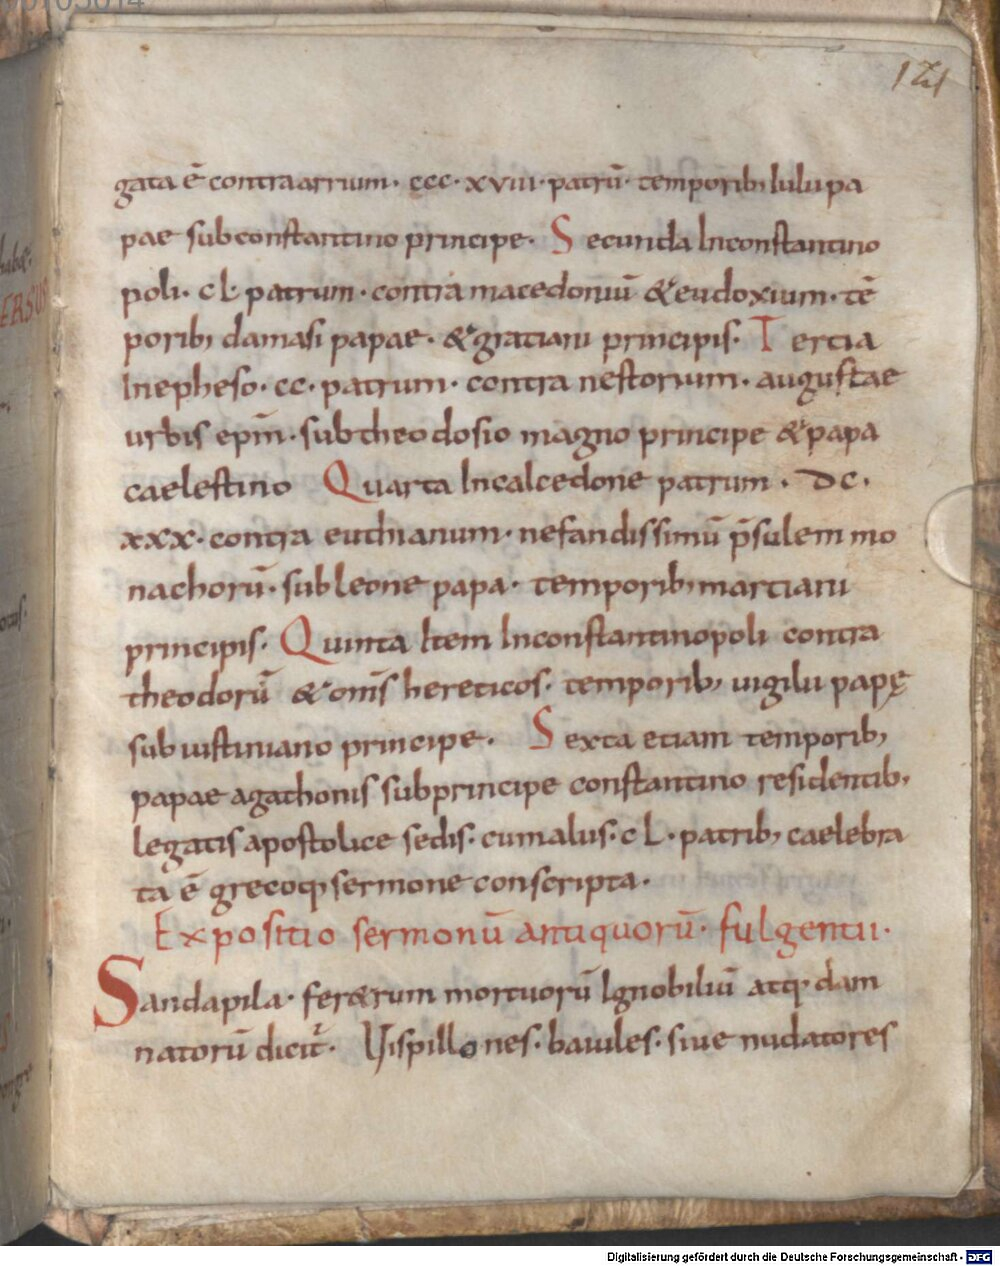 121
gata ē contra arrium · ccc · xviii · patrū · temporib; Iulii pa
pae sub constantino principe · Secunda In constantino
poli · cL · patrum · contra macedoniū & eudoxium · tē
porib; damasi papae · & gratiani principis · Tertia
In epheso · cc · patrum · contra nestorium · augustae
urbis epm̄ · sub theodosio magno principe & papa
caelestino Quarta In calcedone patrum · DC ·
xxx · contra euthianum · nefandissimū p̄sulem mo
nachorū · sub leone papa · temporib; martiani
principis · Quinta Item In constantinopoli contra
theodorū & om̄s hereticos · temporib; uigilii papę
sub iustiniano principe · Sexta etiam temporib;
papae agathonis sub principe constantino residentib;
legatis apostolice sedis · cum alus · cL · patrib; caelebra
ta ē grecoq; sermone conscripta ·
Expositio sermonū antiquorū · fulgentii ·
Sandapila · fer&rum mortuorū Ignobiliū atq; dam
natorū dicit̄ · Uispillones · baiules · siue nudatores
habe
ERSUS
ocus
Digitalisierung gefördert durch die Deutsche Forschungsgemeinschaft · DFG